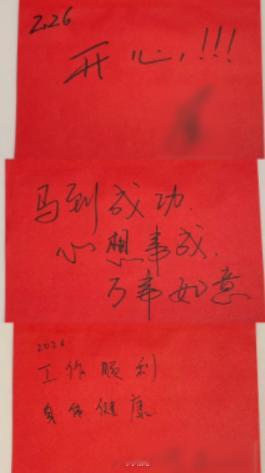 2026
开心,!!!
马到成功.
心想事成.
万事如意
2026
工作顺利
身体健康